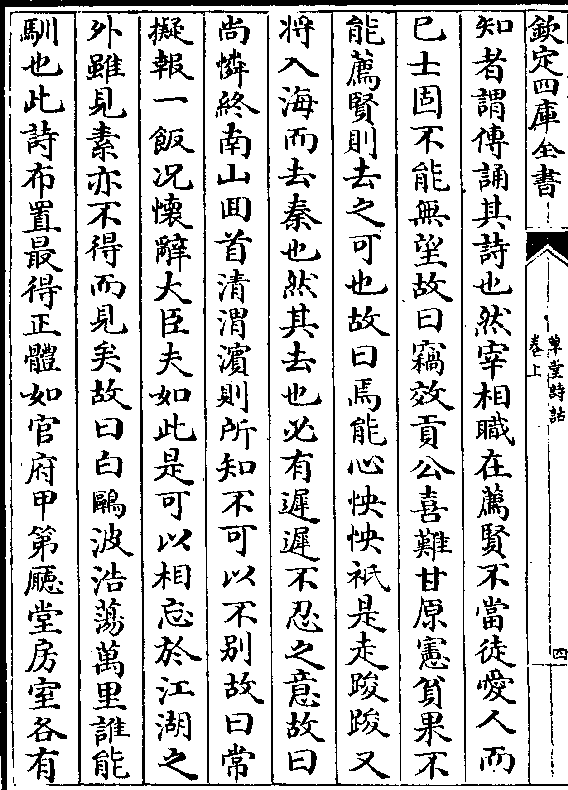 欽定四庫全書
草堂詩話
卷上
四
知者謂傳誦其詩也然宰相職在薦賢不當徒愛人而
已士固不能無望故曰竊效貢公喜難甘原憲貧果不
能薦賢則去之可也故曰焉能心怏怏祇是走踆踆又
将入海而去秦也然其去也必有遲遲不忍之意故曰
尚憐終南山回首清渭濱則所知不可以不别故曰常
擬報一飯况懷辭大臣夫如此是可以相忘於江湖之
外雖見素亦不得而見矣故曰白鷗波浩蕩萬里誰能
馴也此詩布置最得正體如官府甲第廳堂房室各有